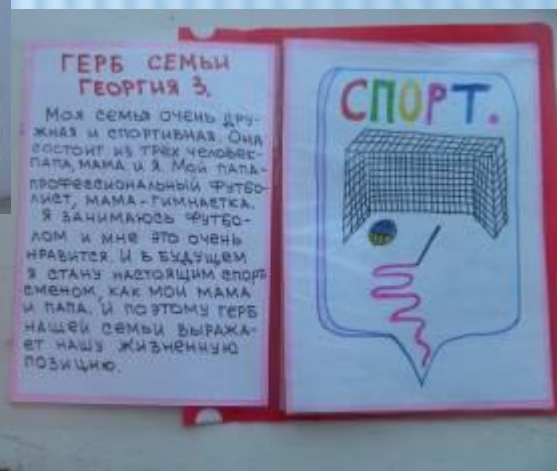 ГЕРБ СЕМЬИ
ГЕОРГИЯ З.
Моя семья очень дру-
жная и спортивная. Она
состоит из трех человек-
папа, мама и я. Мой папа-
профессиональный футбо-
лист, мама-гимнастка.
Я занимаюсь футбо-
лом и мне это очень
нравится. И в будущем
я стану настоящим спорт-
сменом, как мои мама
и папа. И поэтому герб
нашей семьи выража-
ет нашу жизненную
позицию.
СПОРТ.